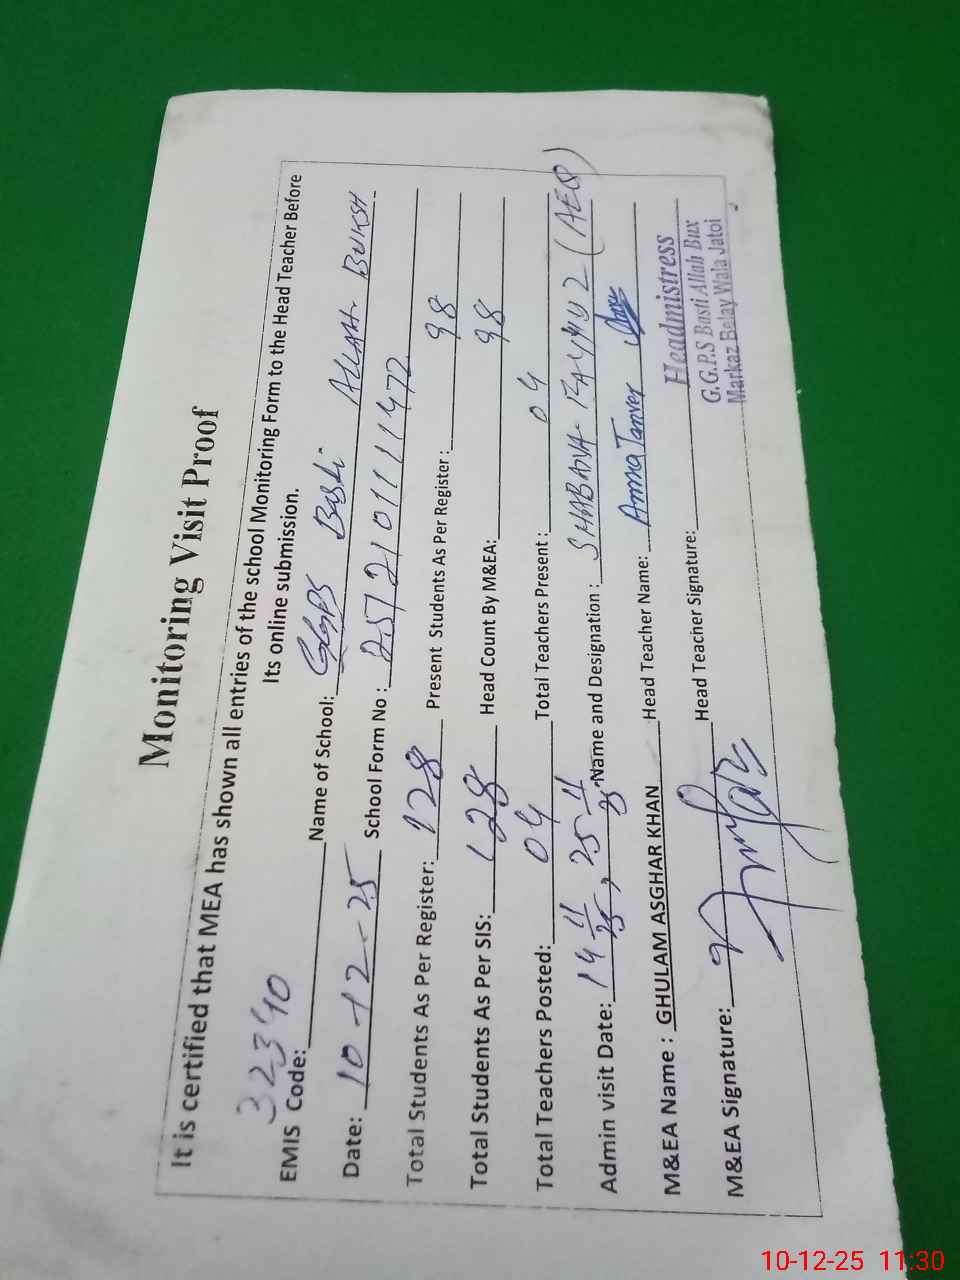 Monitoring Visit Proof
It is certified that MEA has shown all entries of the school Monitoring Form to the Head Teacher Before
Its online submission.
EMIS Code: 32340 Name of School: GGPS Basti ALLAH BUKSH
Date: 10-12-25 School Form No :
Total Students As Per Register: 128 Present Students As Per Register : 98
Total Students As Per SIS: 128 Head Count By M&EA: 98
Total Teachers Posted: 04 Total Teachers Present : 04
Admin visit Date: 14 11/25, 25 11/25 Name and Designation : (AEO)
M&EA Name : GHULAM ASGHAR KHAN Head Teacher Name: Anma Tanver
M&EA Signature: Head Teacher Signature:
Headmistress
G.G.P.S Basti Allah Bux
Markaz Belay Wala Jatoi
10-12-25 11:30